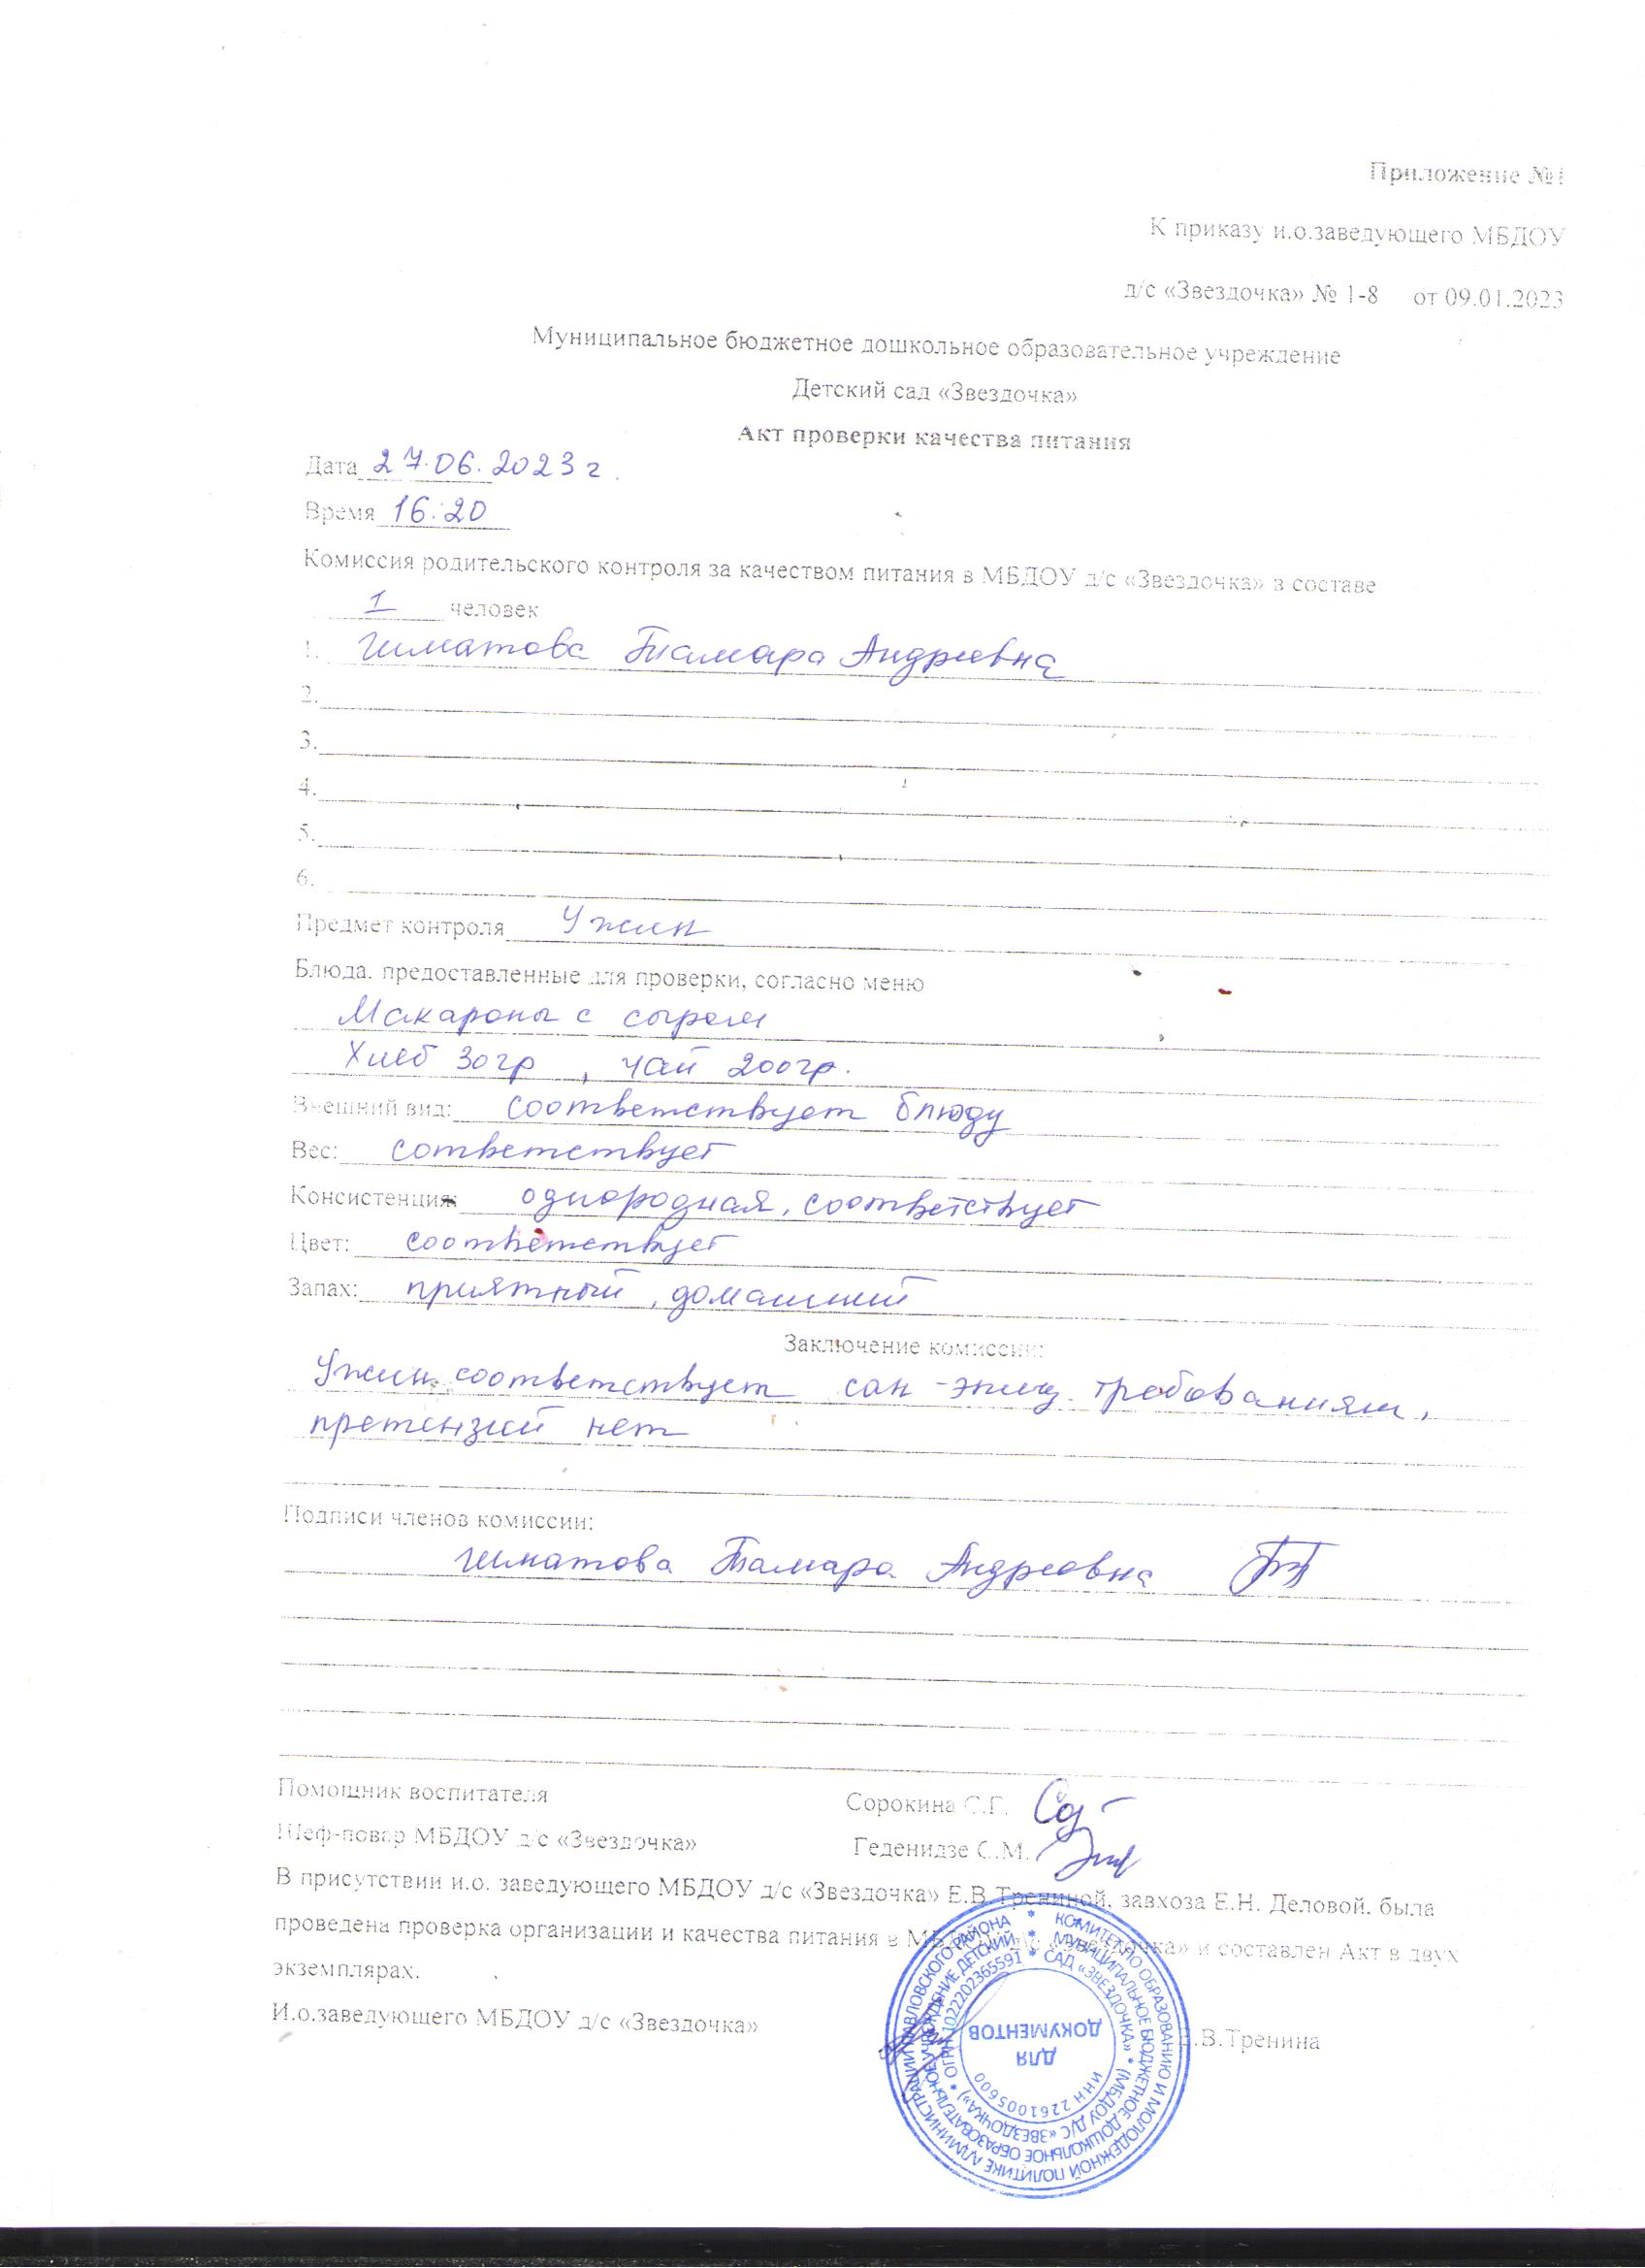 Приложение №1
К приказу и.о.заведующего МБДОУ
д/с «Звездочка» № 1-8 от 09.01.2023
Муниципальное бюджетное дошкольное образовательное учреждение
Детский сад «Звездочка»
Акт проверки качества питания
Дата 27.06.2023 г.
Время 16:20
Комиссия родительского контроля за качеством питания в МБДОУ д/с «Звездочка» в составе
1 человек
1. Тамара Андреевна
2.
3.
4.
5.
6.
Предмет контроля Ужин
Блюда, предоставленные для проверки, согласно меню
Макароны с сыром
Хлеб 30гр , чай 200гр.
Внешний вид: соответствует блюду
Вес: сответствует
Консистенция: однородная, соответствует
Цвет: соответствует
Запах: приятный, домашний
Заключение комиссии:
Ужин соответствует сан-эпид. требованиям,
претензий нет
Подписи членов комиссии:
Тамара Андреевна
Помощник воспитателя Сорокина С.Г.
Шеф-повар МБДОУ д/с «Звездочка» Геденидзе С.М.
В присутствии и.о. заведующего МБДОУ д/с «Звездочка» Е.В.Трениной, завхоза Е.Н. Деловой, была
проведена проверка организации и качества питания в МБДОУ д/с «Звездочка» и составлен Акт в двух
экземплярах.
И.о.заведующего МБДОУ д/с «Звездочка» .В.Тренина
КОМИТЕТ ПО ОБРАЗОВАНИЮ И МОЛОДЕЖНОЙ ПОЛИТИКЕ АДМИНИСТРАЦИИ ПАВЛОВСКОГО РАЙОНА *
МУНИЦИПАЛЬНОЕ БЮДЖЕТНОЕ ДОШКОЛЬНОЕ ОБРАЗОВАТЕЛЬНОЕ УЧРЕЖДЕНИЕ ДЕТСКИЙ *
САД «ЗВЕЗДОЧКА» * (МБДОУ Д/С «ЗВЕЗДОЧКА») * ОГРН 1022202365591 *
ИНН 2261005600
ДЛЯ
ДОКУМЕНТОВ